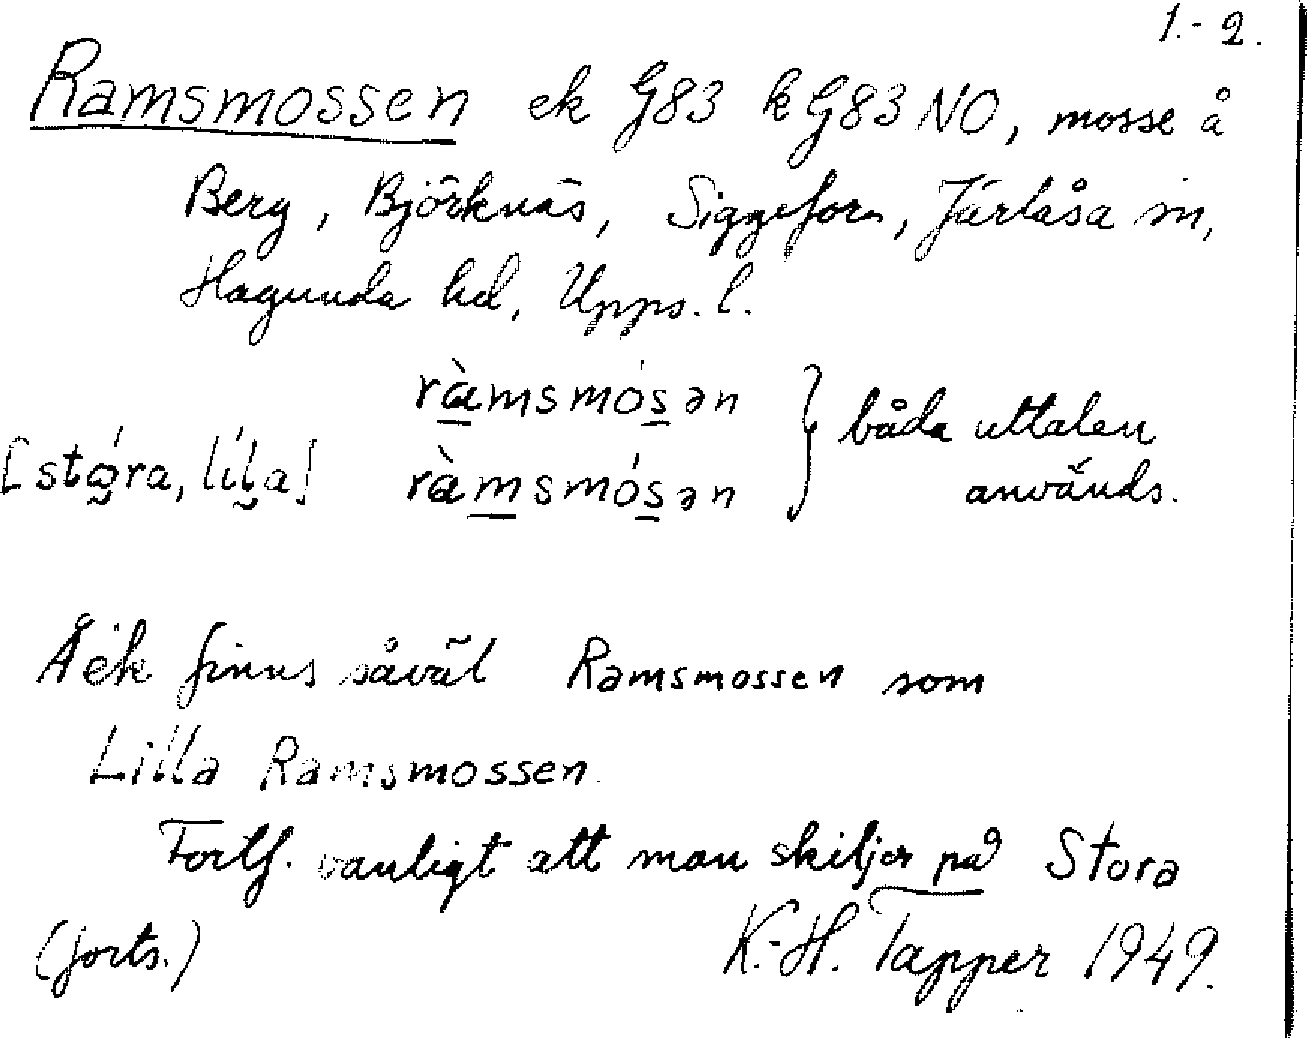 1.-2.
Ramsmossen ek G83 k G83 NO, mosse å
Berg, Björknäs, Siggefora, Järlåsa sn,
Hagunda hd, Upps. l.
ràmsmósən } båda uttalen
[stóra, líla] ràmsmósən används.
Å ek finns såväl Ramsmossen som
Lilla Ramsmossen.
Fortf. vanligt att man skiljer på Stora
(forts.) K.-H. Tapper 1949.